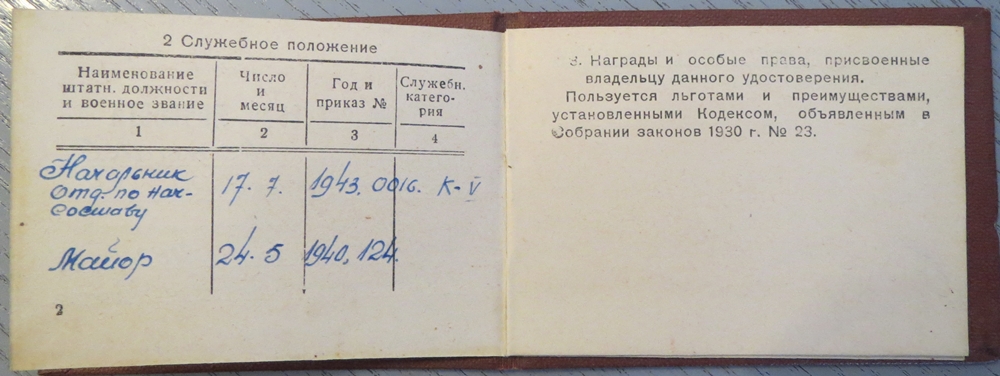 2 Служебное положение
Наименование штатн. должности и военное звание
Число и месяц
Год и приказ №
Служебн. катего-рия
1 2 3 4
Начальник 17. 7. 1943. 0016. К-V
Отд. по нач-
составу
Майор 24. 5 1940, 124.
2
3. Награды и особые права, присвоенные
владельцу данного удостоверения.
Пользуется льготами и преимуществами,
установленными Кодексом, объявленным в
Собрании законов 1930 г. № 23.